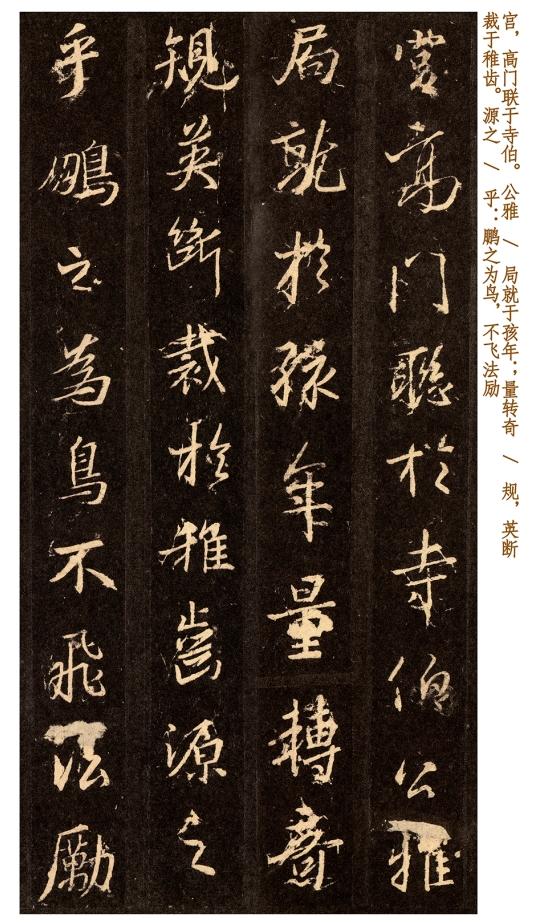 官，高门联于寺伯。公雅 \ 局就于孩年；量转奇 \ 规，英断
裁于稚齿。源之 \ 乎：鹏之为鸟，不飞法励
高門聯於寺伯公雅
局就於孩年量轉奇
規英斷裁於稚齒源之
乎鵬之為鳥不飛法勵